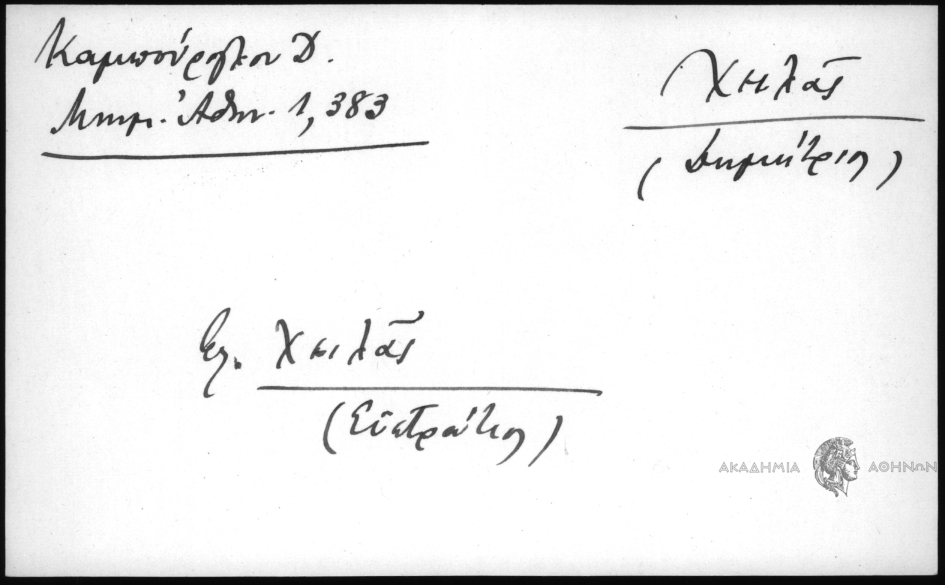 Καμπούρογλου Δ.
Μνημ. Ἀθην. 1, 383
Χειλᾶς
(Δημήτριος)
Ἐλ. Χειλᾶς
(Εὐστράτιος)
ΑΚΑΔΗΜΙΑ ΑΘΗΝΩΝ